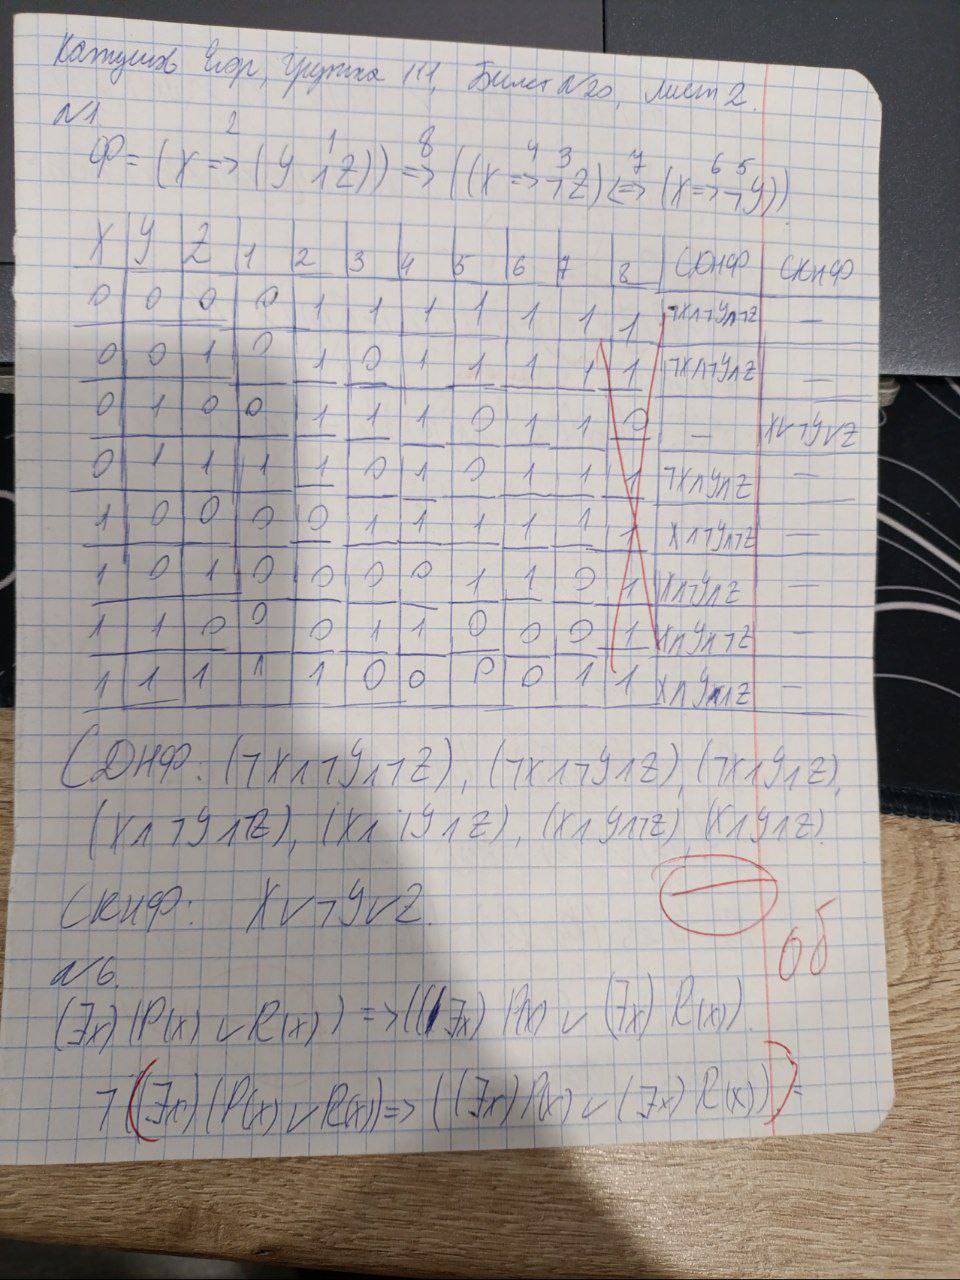 Егор, группа 111, Билет №20, лист 2.
№1.
2 1 8 4 3 7 6 5
Ф = (X => (Y ∧ Z)) => ((X => ¬Z) <=> (X => ¬Y))
X Y Z 1 2 3 4 5 6 7 8 СДНФ СКНФ
0 0 0 0 1 1 1 1 1 1 1 ¬X∧¬Y∧¬Z —
0 0 1 0 1 0 1 1 1 1 1 ¬X∧¬Y∧Z —
0 1 0 0 1 1 1 0 1 1 0 — X∨¬Y∨Z
0 1 1 1 1 0 1 0 1 1 1 ¬X∧Y∧Z —
1 0 0 0 0 1 1 1 1 1 1 X∧¬Y∧¬Z —
1 0 1 0 0 0 0 1 1 0 1 X∧¬Y∧Z —
1 1 0 0 0 1 1 0 0 0 1 X∧Y∧¬Z —
1 1 1 1 1 0 0 0 0 1 1 X∧Y∧Z —
СДНФ: (¬X∧¬Y∧¬Z), (¬X∧¬Y∧Z), (¬X∧Y∧Z),
(X∧¬Y∧¬Z), (X∧¬Y∧Z), (X∧Y∧¬Z), (X∧Y∧Z).
СКНФ: X∨¬Y∨Z.
0б
№6.
(∃x)(P(x) ∨ R(x)) => ((∃x) P(x) ∨ (∃x) R(x)).
¬((∃x)(P(x) ∨ R(x)) => ((∃x) P(x) ∨ (∃x) R(x))) =